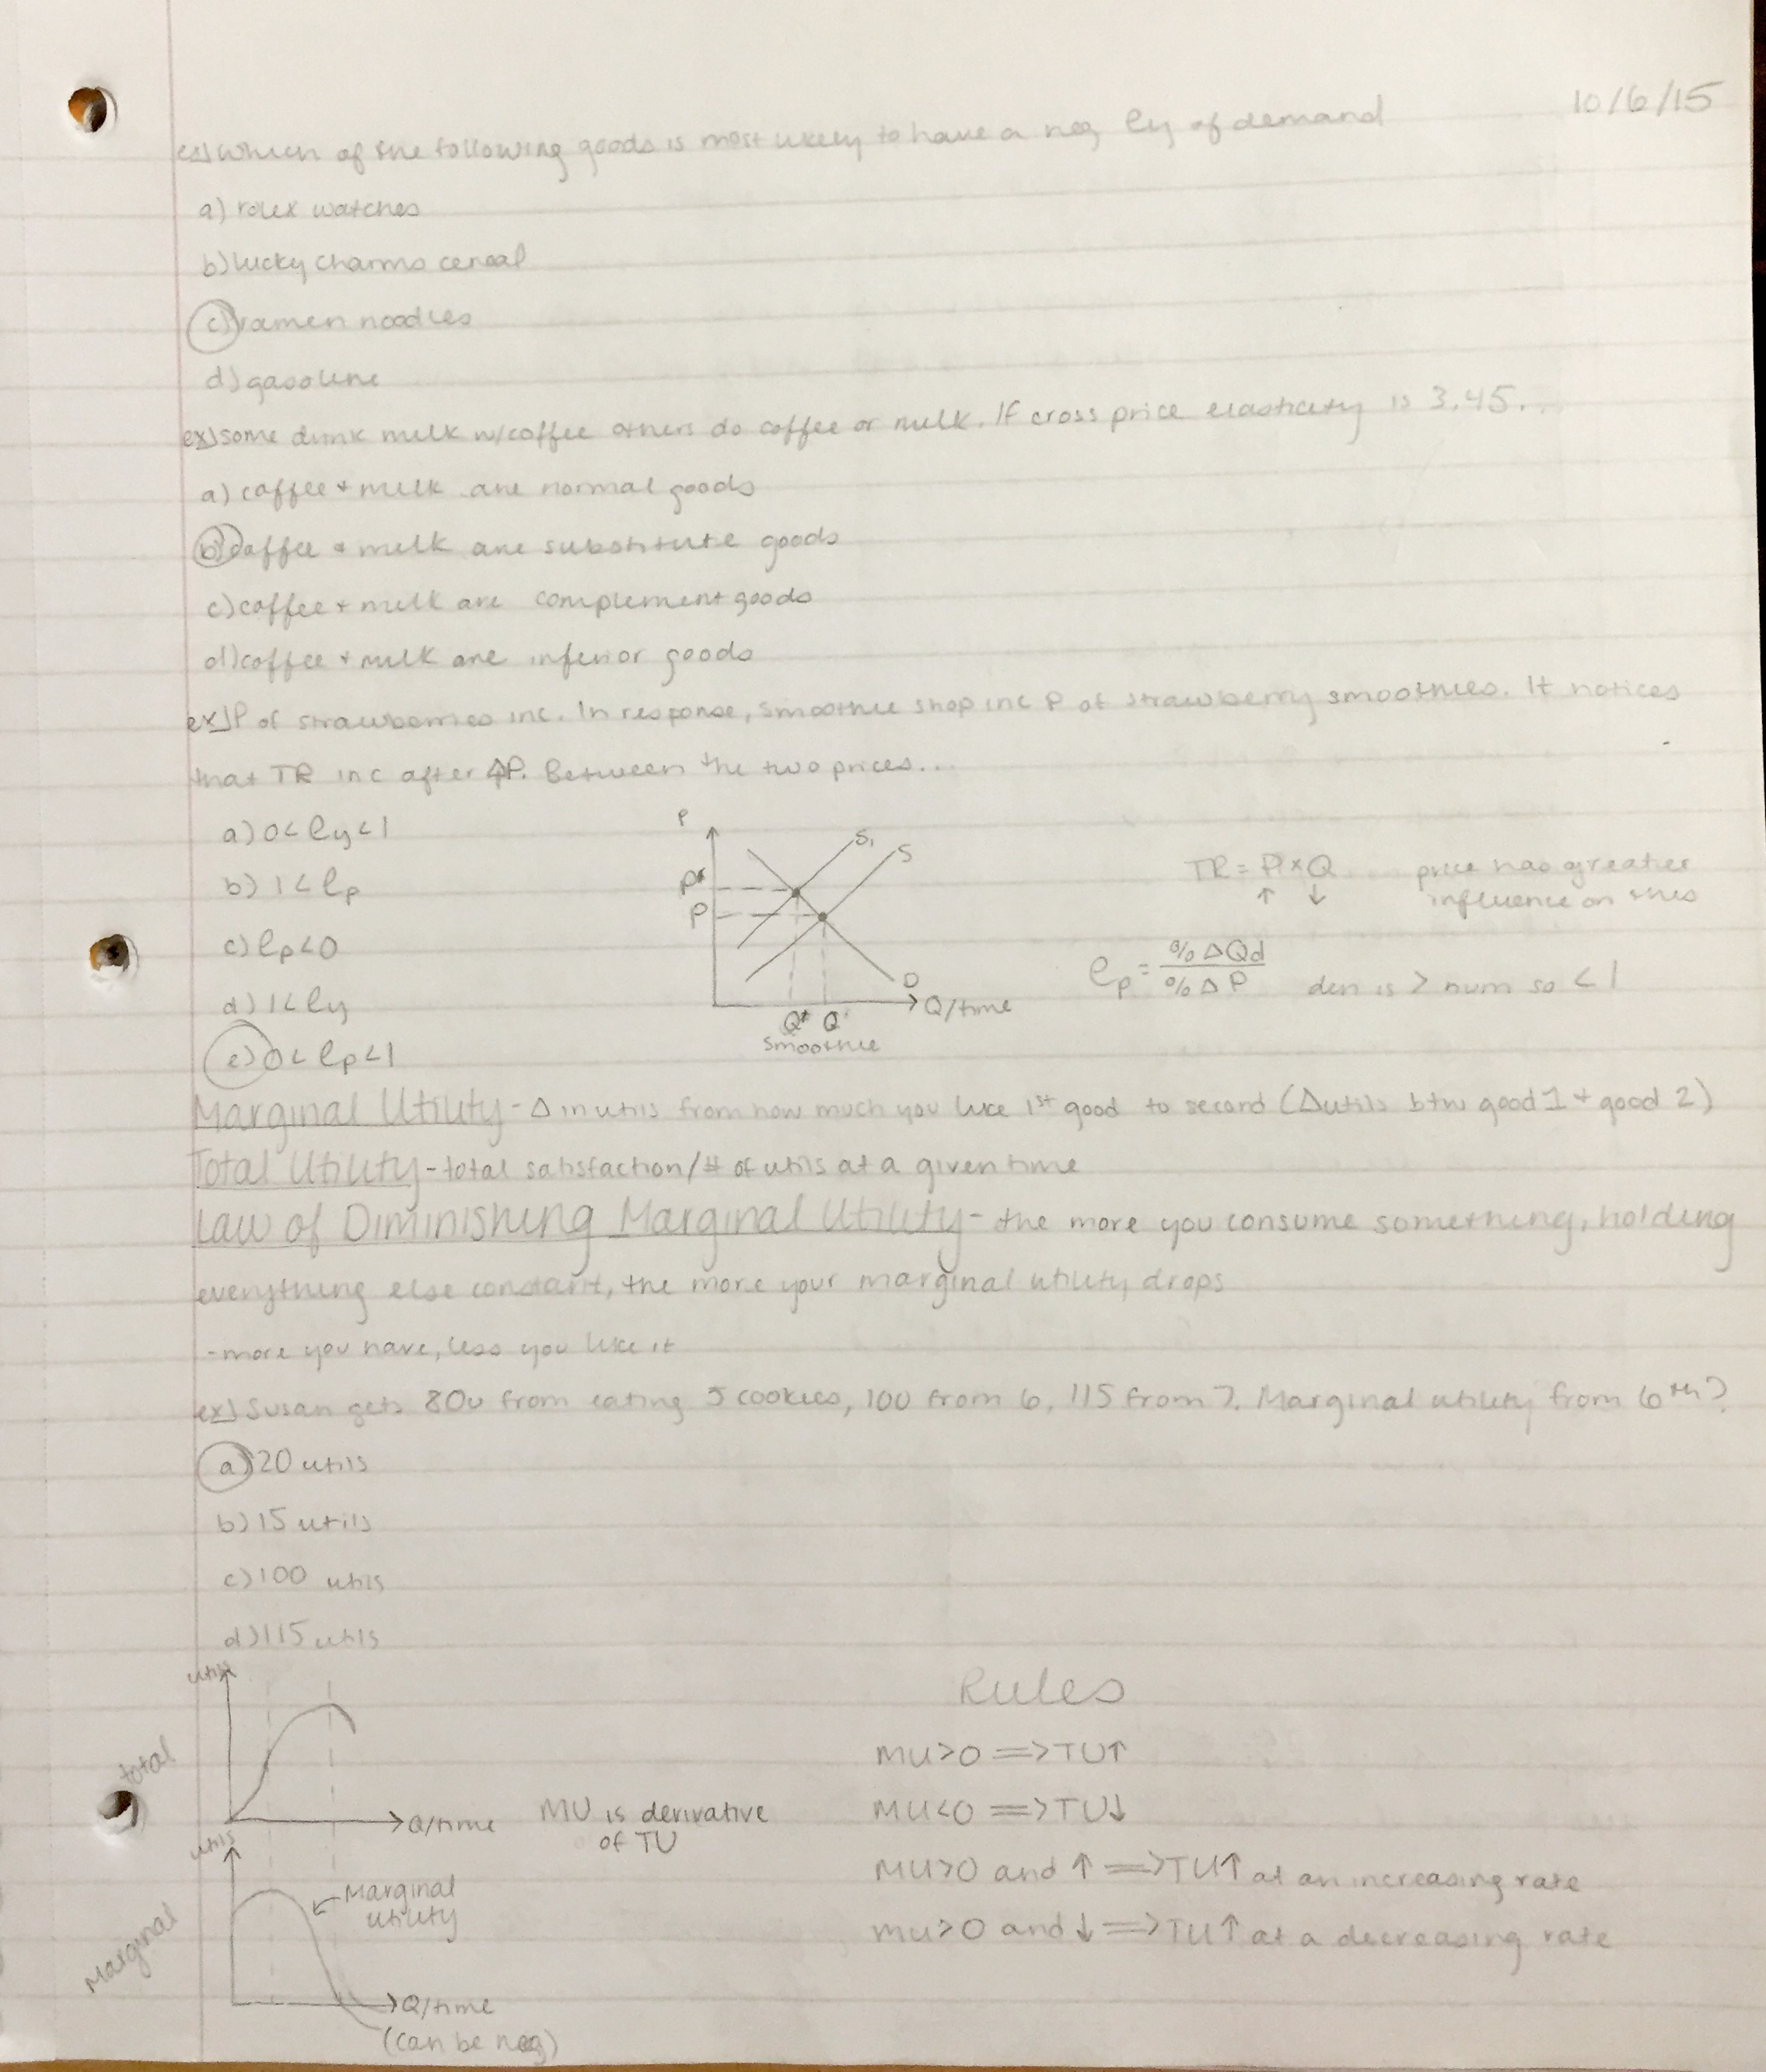 10/6/15
ex) which of the following goods is most likely to have a neg ey of demand
a) rolex watches
b) lucky charms cereal
c) ramen noodles
d) gasoline
ex) some drink milk w/coffee others do coffee or milk. If cross price elasticity is 3.45...
a) coffee + milk are normal goods
b) coffee + milk are substitute goods
c) coffee + milk are complement goods
d) coffee + milk are inferior goods
ex) P of strawberries inc. In response, smoothie shop inc P of strawberry smoothies. It notices
that TR inc after ΔP. Between the two prices...
a) 0<ey<1
b) 1<ep
c) ep<0
d) 1<ey
e) 0<ep<1
P
S₁
S
P*
P
D
Q/time
Q* Q
smoothie
TR = P×Q price has greater
↑ ↓ influence on this
ep = %ΔQd / %ΔP den is > num so <1
Marginal Utility - Δ in utils from how much you like 1st good to second (Δutils btw good 1 + good 2)
Total Utility - total satisfaction/# of utils at a given time
Law of Diminishing Marginal Utility - the more you consume something, holding
everything else constant, the more your marginal utility drops
- more you have, less you like it
ex) Susan gets 80u from eating 5 cookies, 100 from 6, 115 from 7. Marginal utility from 6th?
a) 20 utils
b) 15 utils
c) 100 utils
d) 115 utils
utils
total
Q/time
MU is derivative
of TU
utils
Marginal
Marginal
utility
Q/time
(can be neg)
Rules
MU>0 => TU↑
MU<0 => TU↓
MU>0 and ↑ => TU↑ at an increasing rate
MU>0 and ↓ => TU↑ at a decreasing rate